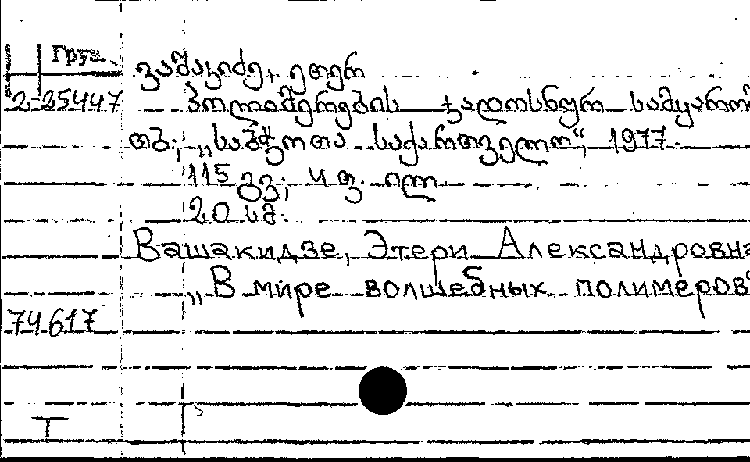 Груз.
ვაშაკიძე, ეთერ
2-25447 პოლიმერების ჯადოსნურ სამყაროშ
თბ., „საბჭოთა საქართველო“, 1977.
115 გვ; 4 ფ. ილ
20 სმ.
Вашакидзе, Этери Александровна
„В мире волшебных полимеров“
74617
T